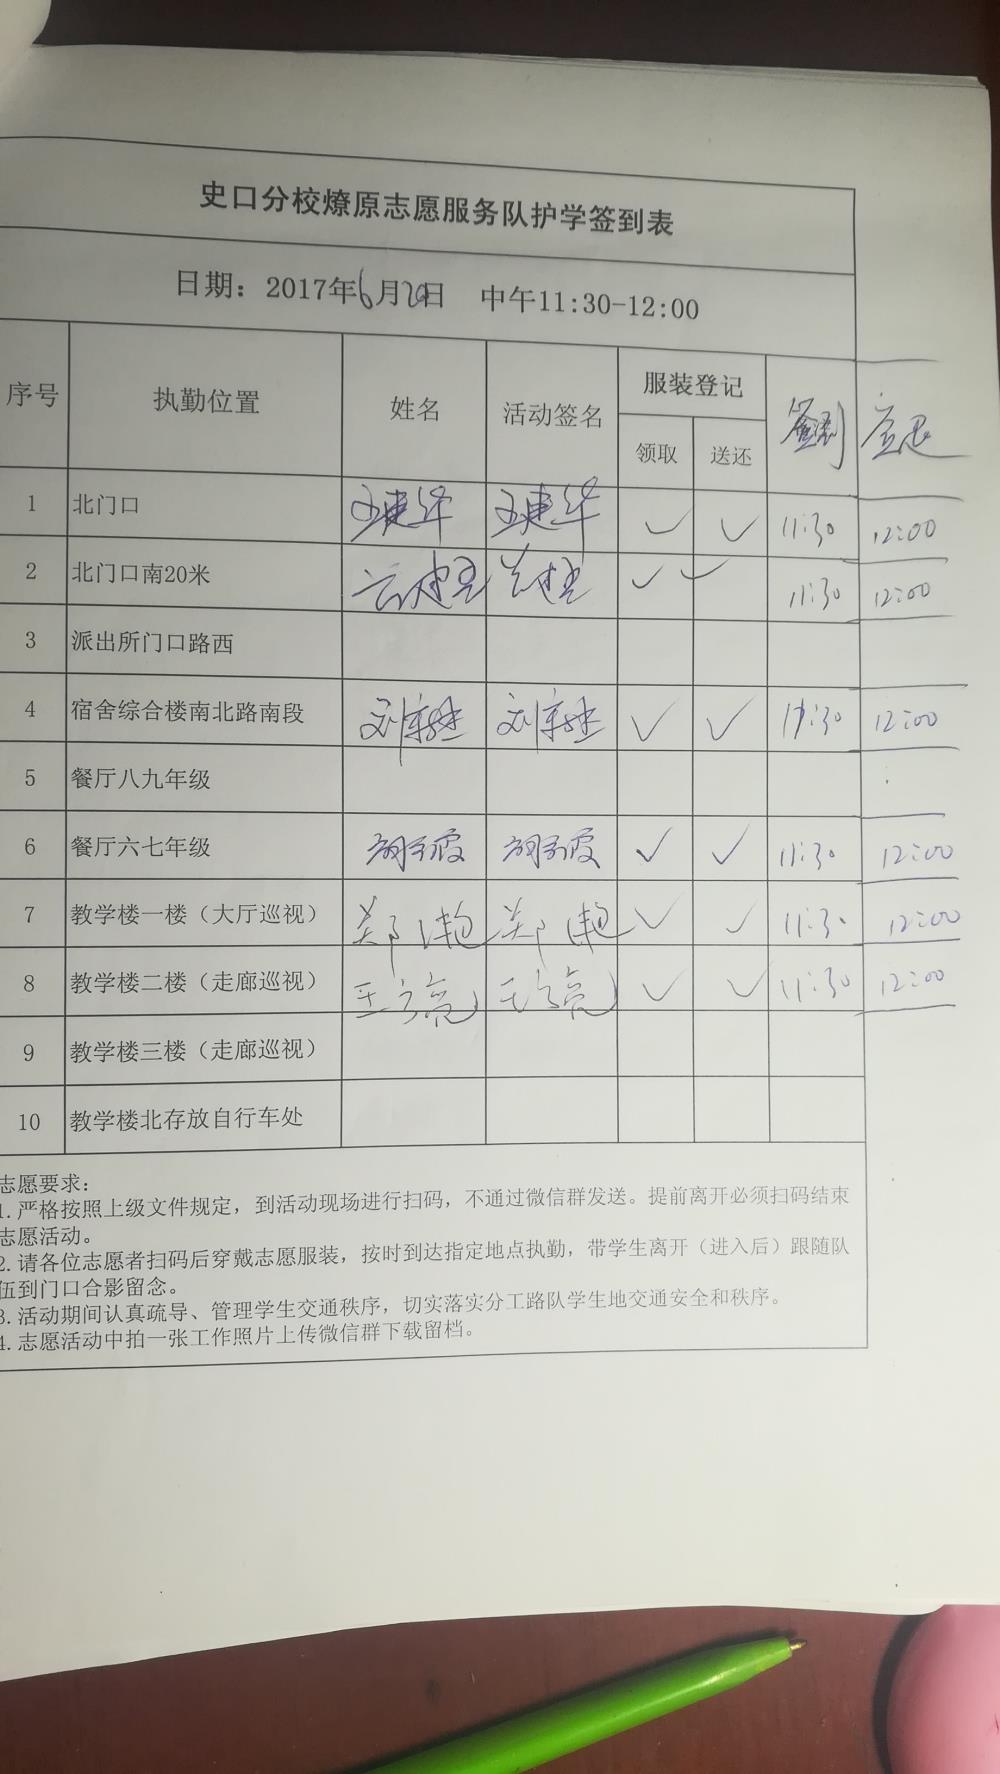 史口分校燎原志愿服务队护学签到表
日期：2017年6月20日 中午11:30-12:00
序号 执勤位置 姓名 活动签名 服装登记 签到 签退
领取 送还
1 北门口 王建华 王建华 ✓ ✓ 11:30 12:00
2 北门口南20米 ✓ ✓ 11:30 12:00
3 派出所门口路西
4 宿舍综合楼南北路南段 ✓ ✓ 11:30 12:00
5 餐厅八九年级
6 餐厅六七年级 ✓ ✓ 11:30 12:00
7 教学楼一楼（大厅巡视） ✓ ✓ 11:30 12:00
8 教学楼二楼（走廊巡视） ✓ ✓ 11:30 12:00
9 教学楼三楼（走廊巡视）
10 教学楼北存放自行车处
志愿要求：
1.严格按照上级文件规定，到活动现场进行扫码，不通过微信群发送。提前离开必须扫码结束
志愿活动。
2.请各位志愿者扫码后穿戴志愿服装，按时到达指定地点执勤，带学生离开（进入后）跟随队
伍到门口合影留念。
3.活动期间认真疏导、管理学生交通秩序，切实落实分工路队学生地交通安全和秩序。
4.志愿活动中拍一张工作照片上传微信群下载留档。